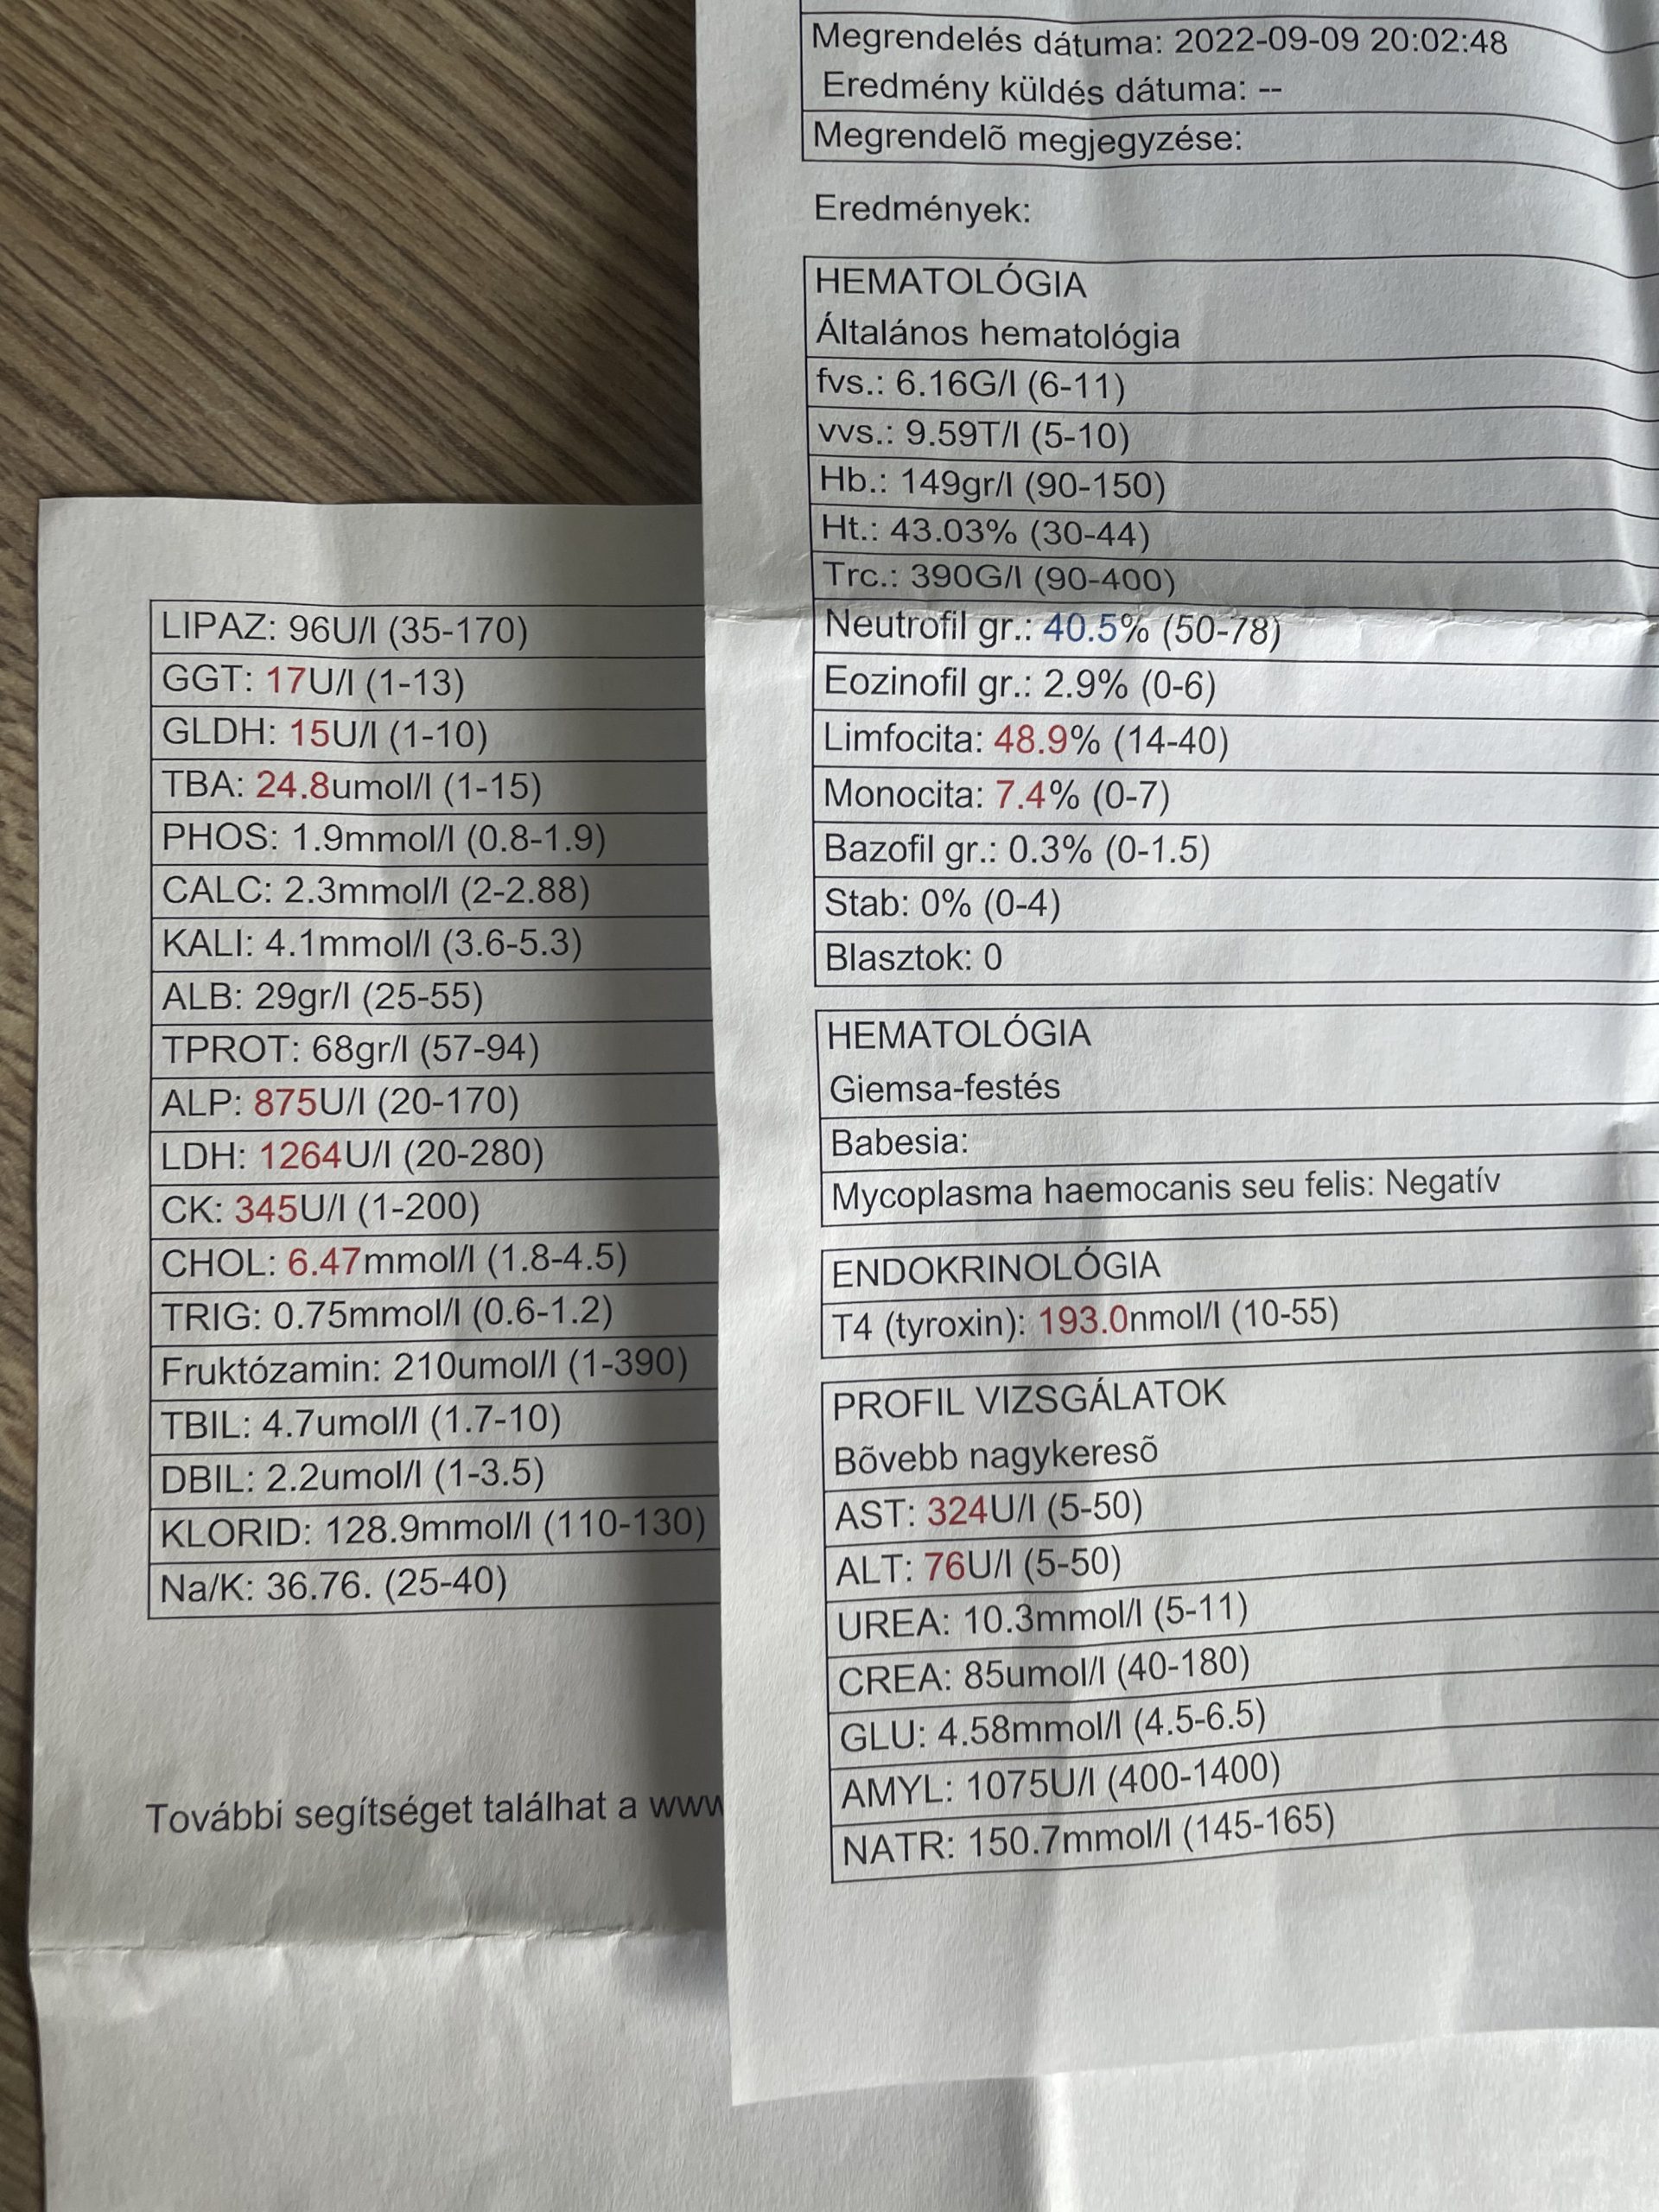 Megrendelés dátuma: 2022-09-09 20:02:48
Eredmény küldés dátuma: --
Megrendelõ megjegyzése:
Eredmények:
HEMATOLÓGIA
Általános hematológia
fvs.: 6.16G/l (6-11)
vvs.: 9.59T/l (5-10)
Hb.: 149gr/l (90-150)
Ht.: 43.03% (30-44)
Trc.: 390G/l (90-400)
Neutrofil gr.: 40.5% (50-78)
Eozinofil gr.: 2.9% (0-6)
Limfocita: 48.9% (14-40)
Monocita: 7.4% (0-7)
Bazofil gr.: 0.3% (0-1.5)
Stab: 0% (0-4)
Blasztok: 0
HEMATOLÓGIA
Giemsa-festés
Babesia:
Mycoplasma haemocanis seu felis: Negatív
ENDOKRINOLÓGIA
T4 (tyroxin): 193.0nmol/l (10-55)
PROFIL VIZSGÁLATOK
Bõvebb nagykeresõ
AST: 324U/l (5-50)
ALT: 76U/l (5-50)
UREA: 10.3mmol/l (5-11)
CREA: 85umol/l (40-180)
GLU: 4.58mmol/l (4.5-6.5)
AMYL: 1075U/l (400-1400)
NATR: 150.7mmol/l (145-165)
LIPAZ: 96U/l (35-170)
GGT: 17U/l (1-13)
GLDH: 15U/l (1-10)
TBA: 24.8umol/l (1-15)
PHOS: 1.9mmol/l (0.8-1.9)
CALC: 2.3mmol/l (2-2.88)
KALI: 4.1mmol/l (3.6-5.3)
ALB: 29gr/l (25-55)
TPROT: 68gr/l (57-94)
ALP: 875U/l (20-170)
LDH: 1264U/l (20-280)
CK: 345U/l (1-200)
CHOL: 6.47mmol/l (1.8-4.5)
TRIG: 0.75mmol/l (0.6-1.2)
Fruktózamin: 210umol/l (1-390)
TBIL: 4.7umol/l (1.7-10)
DBIL: 2.2umol/l (1-3.5)
KLORID: 128.9mmol/l (110-130)
Na/K: 36.76. (25-40)
További segítséget találhat a www